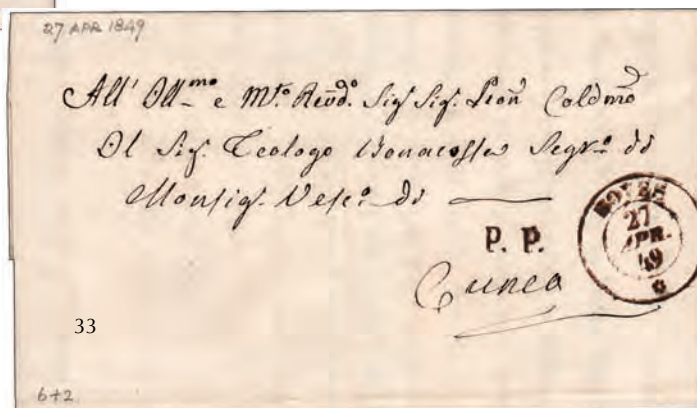 27 APR 1849
All' Ill.mo e M.to Rev.do Sig.r Sig.r Pron Col.dmo
Il Sig.r Teologo Bonacossa Segr.o di
Monsig.r Vesc.o di
P. P.
27
APR.
49
Cuneo
33
6+2